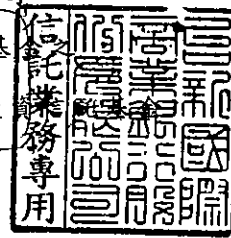 台新國際
商業銀行股
份有限公司
信託業務專用
基
資